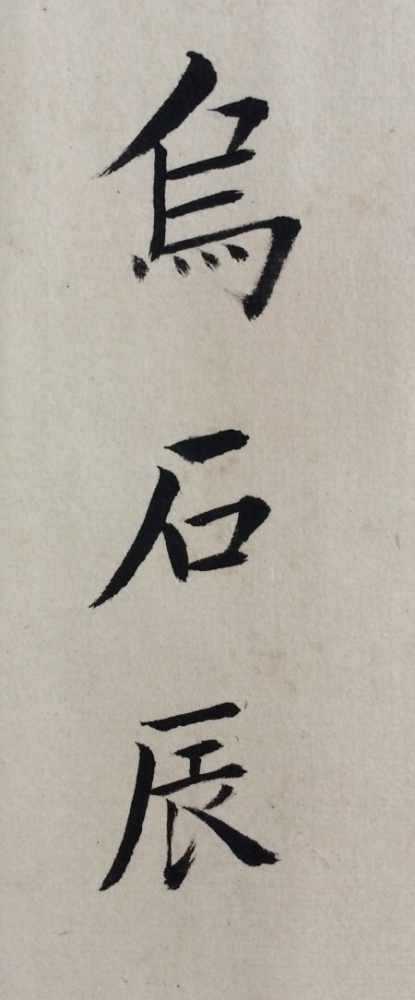 烏石辰